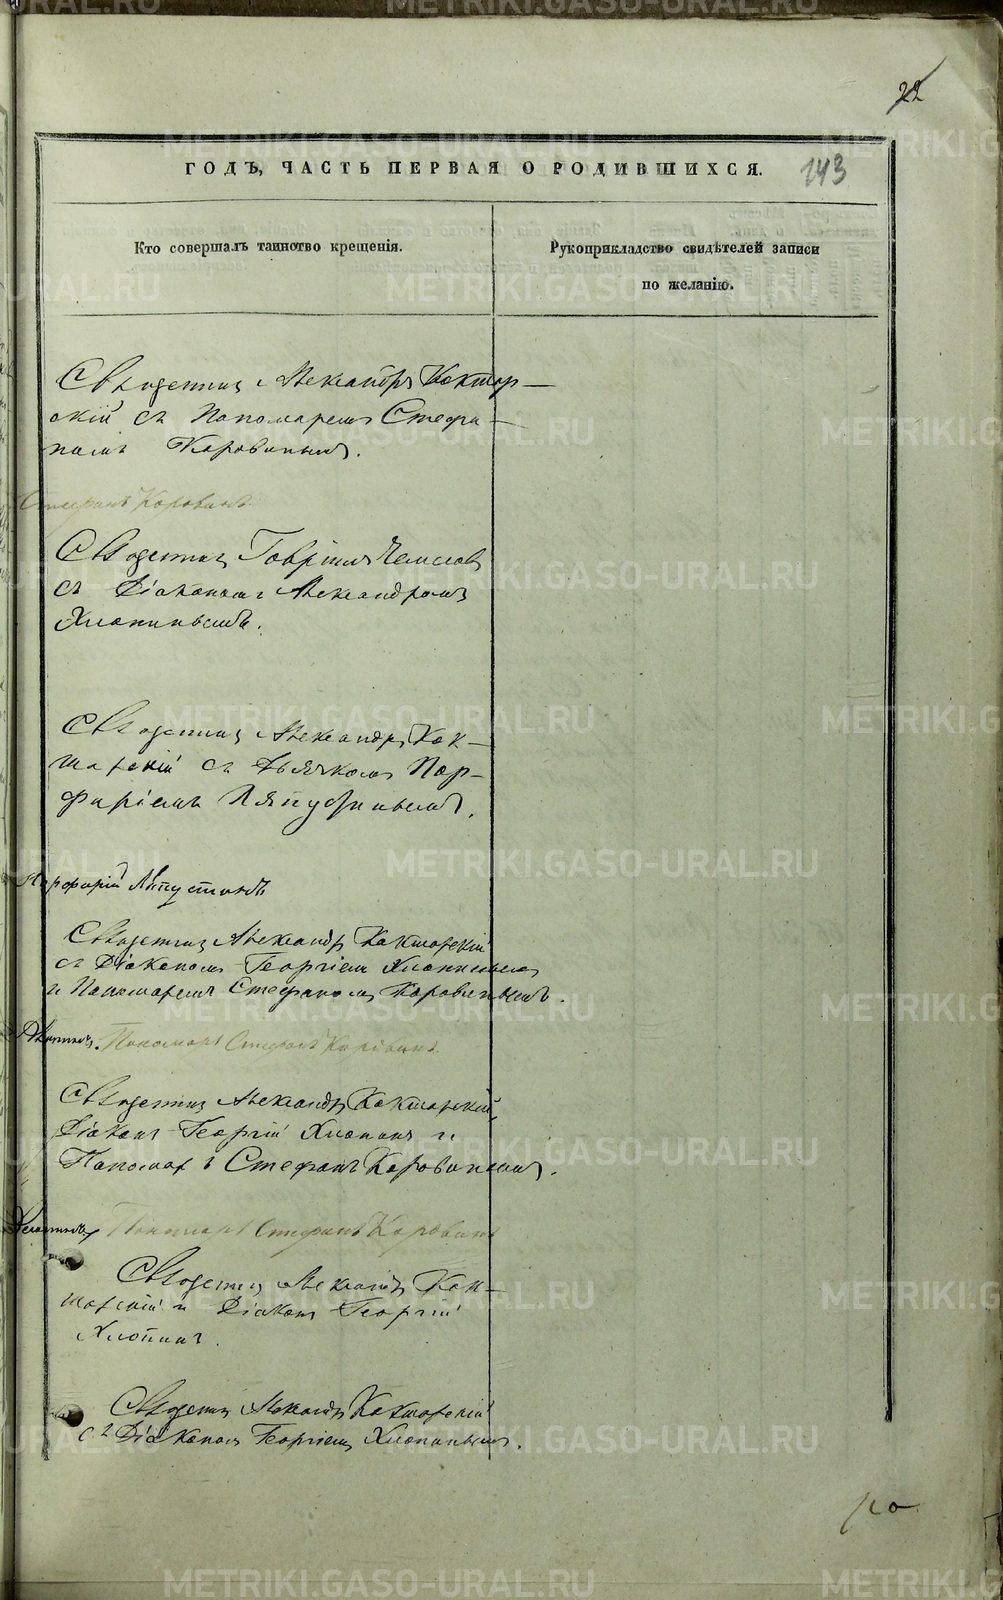 22
ГОДЪ, ЧАСТЬ ПЕРВАЯ О РОДИВШИХСЯ.
143
Кто совершалъ таинство крещенія.
Рукоприкладство свидѣтелей записи
по желанію.
Священникъ Александръ Кокшар-
скій съ Пономаремъ Стефа-
номъ Коровинымъ.
Стефанъ Коровинъ
Священникъ Гавріилъ
съ Діакономъ Александромъ
Хлопинымъ.
Священникъ Александръ Кок-
шарскій съ Дьячкомъ Пор-
фиріемъ Ляпустинымъ.
Порфирій Ляпустинъ
Священникъ Александръ Кокшарскій
съ Діакономъ Георгіемъ Хлопинымъ
и Пономаремъ Стефаномъ Коровинымъ.
Пономарь Стефанъ Коровинъ
Священникъ Александръ Кокшарскій,
Діаконъ Георгій Хлопинъ и
Пономарь Стефанъ Коровинымъ.
Пономарь Стефанъ Коровинъ
Священникъ Александръ Кок-
шарскій и Діаконъ Георгій
Хлопинъ.
Священникъ Александръ Кокшарскій
съ Діакономъ Георгіемъ Хлопинымъ.
METRIKI.GASO-URAL.RU